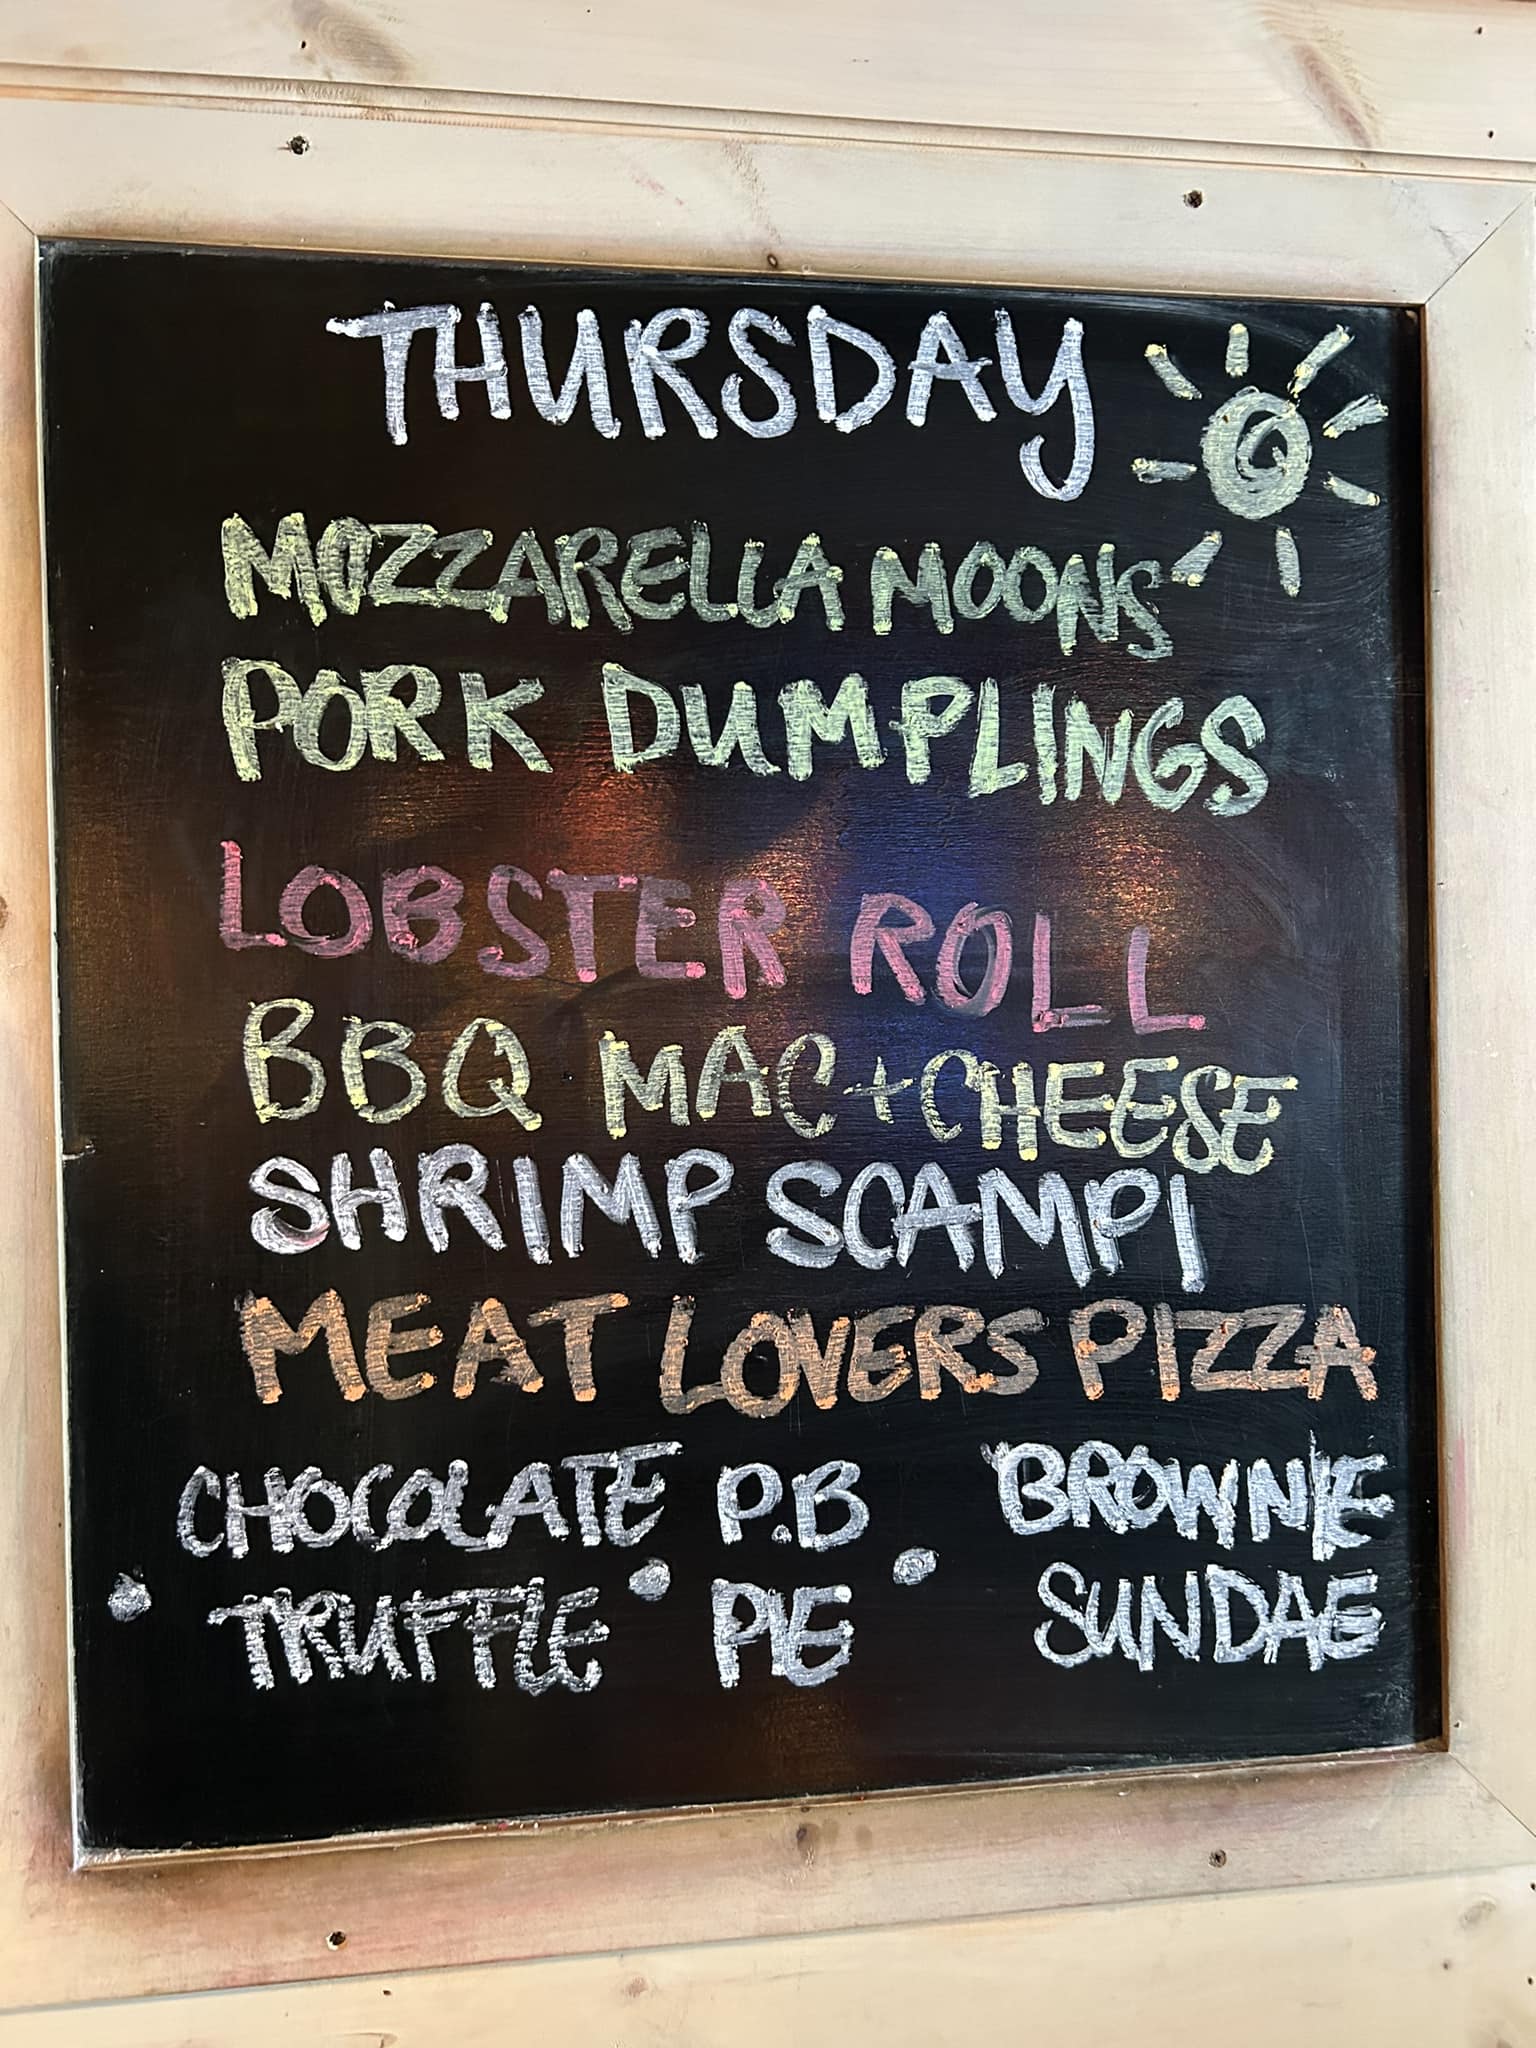 THURSDAY
MOZZARELLA MOONS
PORK DUMPLINGS
LOBSTER ROLL
BBQ MAC + CHEESE
SHRIMP SCAMPI
MEAT LOVERS PIZZA
• CHOCOLATE TRUFFLE
• P.B PIE
• BROWNIE SUNDAE